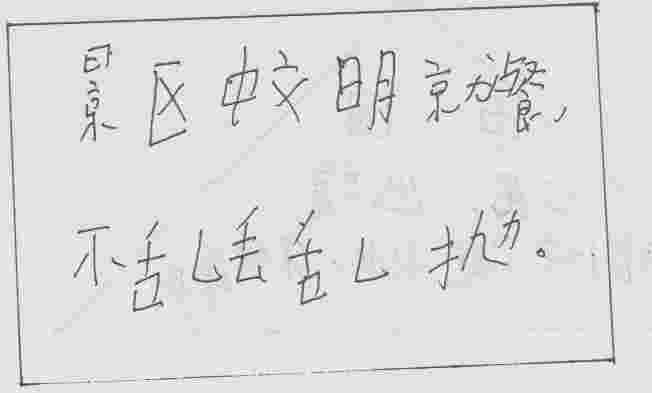 景区中文明就餐，
不乱丢乱抛。